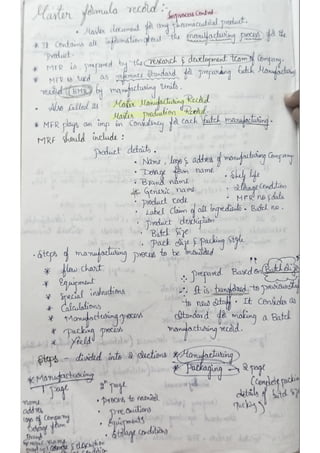 Master formula record :-
Inprocess Control.
• Master document for any pharmaceutical product.
* It contains all information about the manufacturing process for the
product.
* MFR is prepared by the research & development team of Company.
* MFR is used as reference standard for preparing batch Manufacturing
record (BMR) by manufacturing units.
• Also called as Master Manufacturing Record
Master production Record.
* MFR plays an imp in Consistency for each batch manufacturing.
MRF should include :
Product details.
• Name, logo & address of manufacturing Company
• Dosage form name • Shelf life
• Brand name • Storage Condition
* Generic name • MFR no/date
• product code
• Label Claim of all ingredients • Batch no.
• Product description
• Batch Size
• Pack Size & Packing Style
• Steps of manufacturing process to be
* flow chart
* Equipment
* Special instructions
* Calculations
* Manufacturing process
* Packing process
* Yield
• Prepared Based on Batch size
It is transferred to previously
to new. It Considers as
Standard for making a Batch
manufacturing record.
Steps - divided into 2 sections * Manufacturing
* Packaging → 2 page
(Complete packing
details of batch size
Packing)
* Manufacturing
1 page
name
address
logo of Company
Dosage form
Brand
Generic name
2nd page
• Process to
• Precautions
• Equipments
• Storage conditions